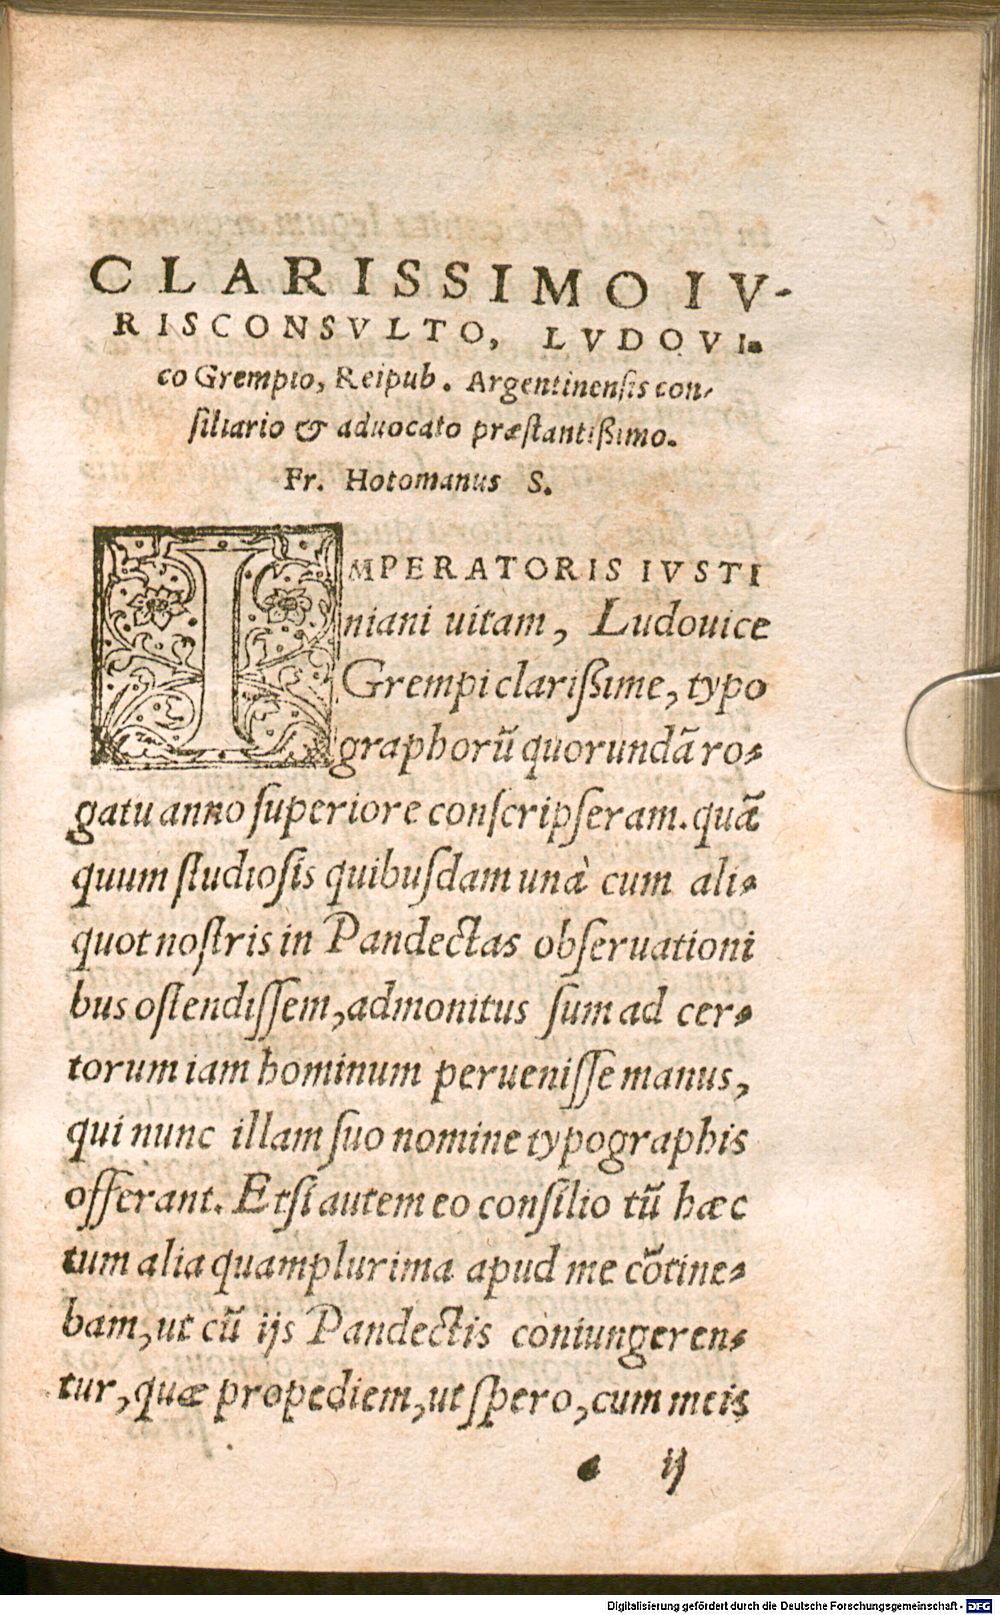 CLARISSIMO IV-
RISCONSVLTO, LVDOVI-
co Grempio, Reipub. Argentinensis con-
siliario & aduocato præstantißimo.
Fr. Hotomanus S.
IMPERATORIS IVSTI
niani uitam, Ludouice
Grempi clarißime, typo
graphorũ quorundã ro-
gatu anno superiore conscripseram. quã
quum studiosis quibusdam unà cum ali-
quot nostris in Pandectas obseruationi
bus ostendissem, admonitus sum ad cer-
torum iam hominum peruenisse manus,
qui nunc illam suo nomine typographis
offerant. Etsi autem eo consilio tũ hæc
tum alia quamplurima apud me cõtine-
bam, ut cũ ijs Pandectis coniungeren-
tur, quæ propediem, ut spero, cum meis
ij
Digitalisierung gefördert durch die Deutsche Forschungsgemeinschaft - DFG